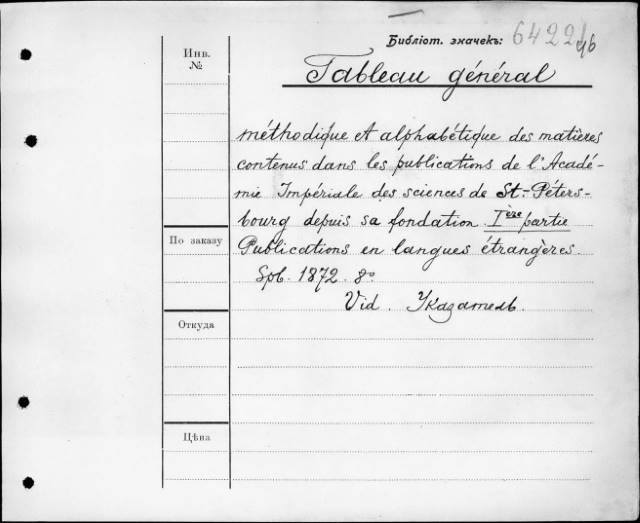 Библіот. значекъ: 6422/46
Инв.
№
Tableau général
méthodique et alphabétique des matières
contenus dans les publications de l'Acadé-
mie Impériale des sciences de St.-Péters-
bourg depuis sa fondation. Ière partie
По заказу
Publications en langues étrangères.
Spb. 1872. 8º
Vid. Указатель.
Откуда
Цѣна